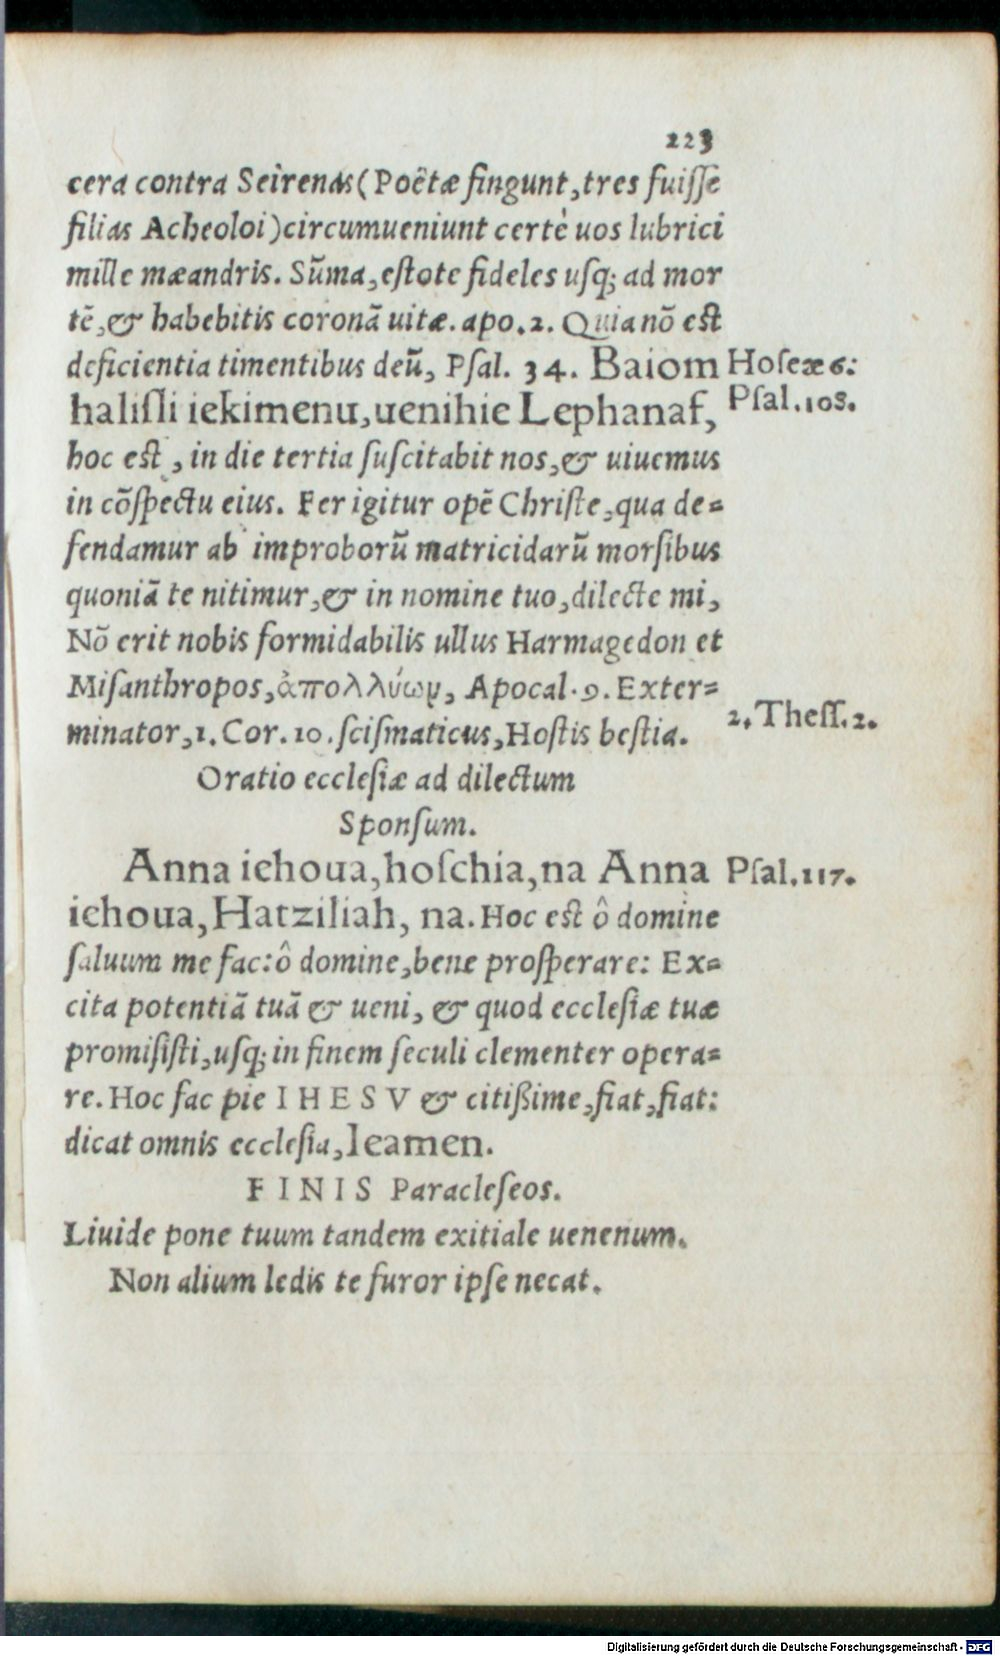 223
cera contra Seirenas (Poëtæ fingunt, tres fuisse
filias Acheoloi) circumueniunt certè uos lubrici
mille mæandris. Sūma, estote fideles usq; ad mor
tē, & habebitis coronā uitæ. apo. 2. Quia nō est
deficientia timentibus deū, Psal. 34. Baiom
Hoseæ 6:
halisli iekimenu, uenihie Lephanaf,
Psal. 103.
hoc est, in die tertia suscitabit nos, & uiuemus
in cōspectu eius. Fer igitur opē Christe, qua de=
fendamur ab improborū matricidarū morsibus
quoniā te nitimur, & in nomine tuo, dilecte mi,
Nō erit nobis formidabilis ullus Harmagedon et
Misanthropos, ἀπολλύωμ, Apocal. 9. Exter=
minator, 1. Cor. 10. scismaticus, Hostis bestia.
2. Thess. 2.
Oratio ecclesiæ ad dilectum
Sponsum.
Anna iehoua, hoschia, na Anna
Psal. 117.
iehoua, Hatziliah, na. Hoc est ô domine
saluum me fac: ô domine, bene prosperare: Ex=
cita potentiā tuā & ueni, & quod ecclesiæ tuæ
promisisti, usq; in finem seculi clementer opera=
re. Hoc fac pie IHESV & citißime, fiat, fiat:
dicat omnis ecclesia, Ieamen.
FINIS Paracleseos.
Liuide pone tuum tandem exitiale uenenum.
Non alium ledis te furor ipse necat.
Digitalisierung gefördert durch die Deutsche Forschungsgemeinschaft - DFG